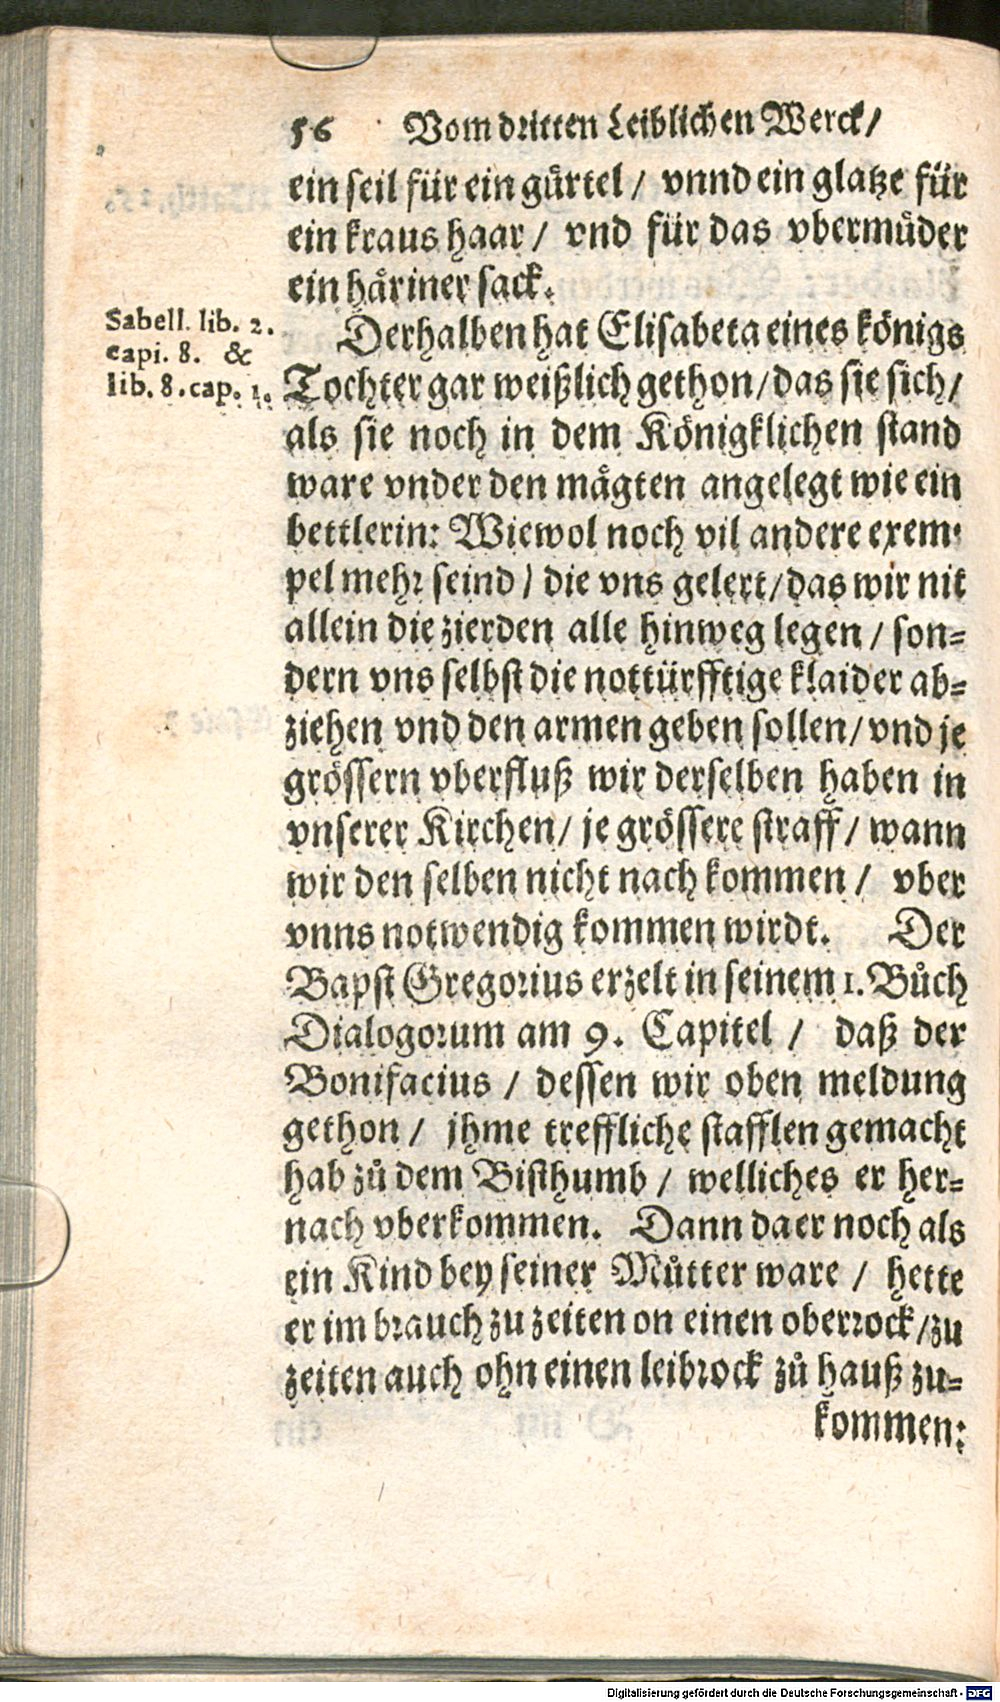 56 Vom dritten Leiblichen Werck/
ein seil für ein gürtel / vnnd ein glatze für
ein kraus haar / vnd für das vbermüder
ein häriner sack.
Sabell. lib. 2.
capi. 8. &
lib. 8. cap. 1.
Derhalben hat Elisabeta eines königs
Tochter gar weißlich gethon/das sie sich/
als sie noch in dem Königklichen stand
ware vnder den mägten angelegt wie ein
bettlerin: Wiewol noch vil andere exem-
pel mehr seind / die vns gelert/das wir nit
allein die zierden alle hinweg legen / son-
dern vns selbst die nottürfftige klaider ab-
ziehen vnd den armen geben sollen/vnd je
grössern vberfluß wir derselben haben in
vnserer Kirchen/ je grössere straff/ wann
wir den selben nicht nach kommen / vber
vnns notwendig kommen wirdt. Der
Bapst Gregorius erzelt in seinem 1. Bůch
Dialogorum am 9. Capitel / daß der
Bonifacius / dessen wir oben meldung
gethon / jhme treffliche stafflen gemacht
hab zů dem Bisthumb / welliches er her-
nach vberkommen. Dann da er noch als
ein Kind bey seiner Můtter ware / hette
er im brauch zu zeiten on einen oberrock/zu
zeiten auch ohn einen leibrock zů hauß zu-
kommen:
Digitalisierung gefördert durch die Deutsche Forschungsgemeinschaft - DFG